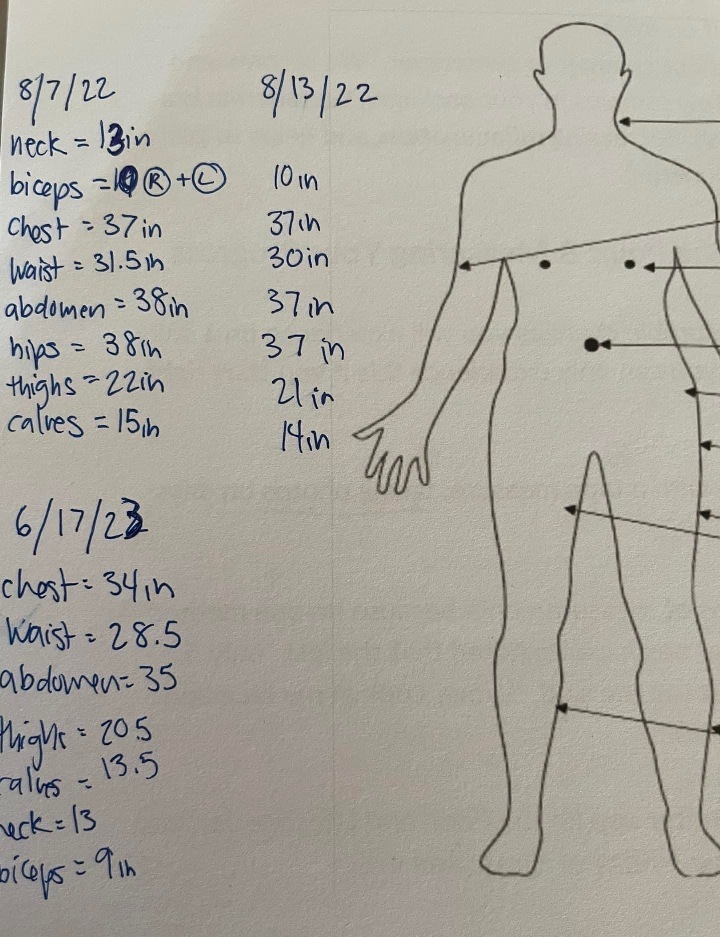 8/7/22 8/13/22
neck = 13in
biceps = 10 R + L 10in
chest = 37in 37in
waist = 31.5in 30in
abdomen = 38in 37in
hips = 38in 37in
thighs = 22in 21in
calves = 15in 14in
6/17/23
chest = 34in
Waist = 28.5
abdomen = 35
thighs = 20.5
calves = 13.5
neck = 13
biceps = 9in